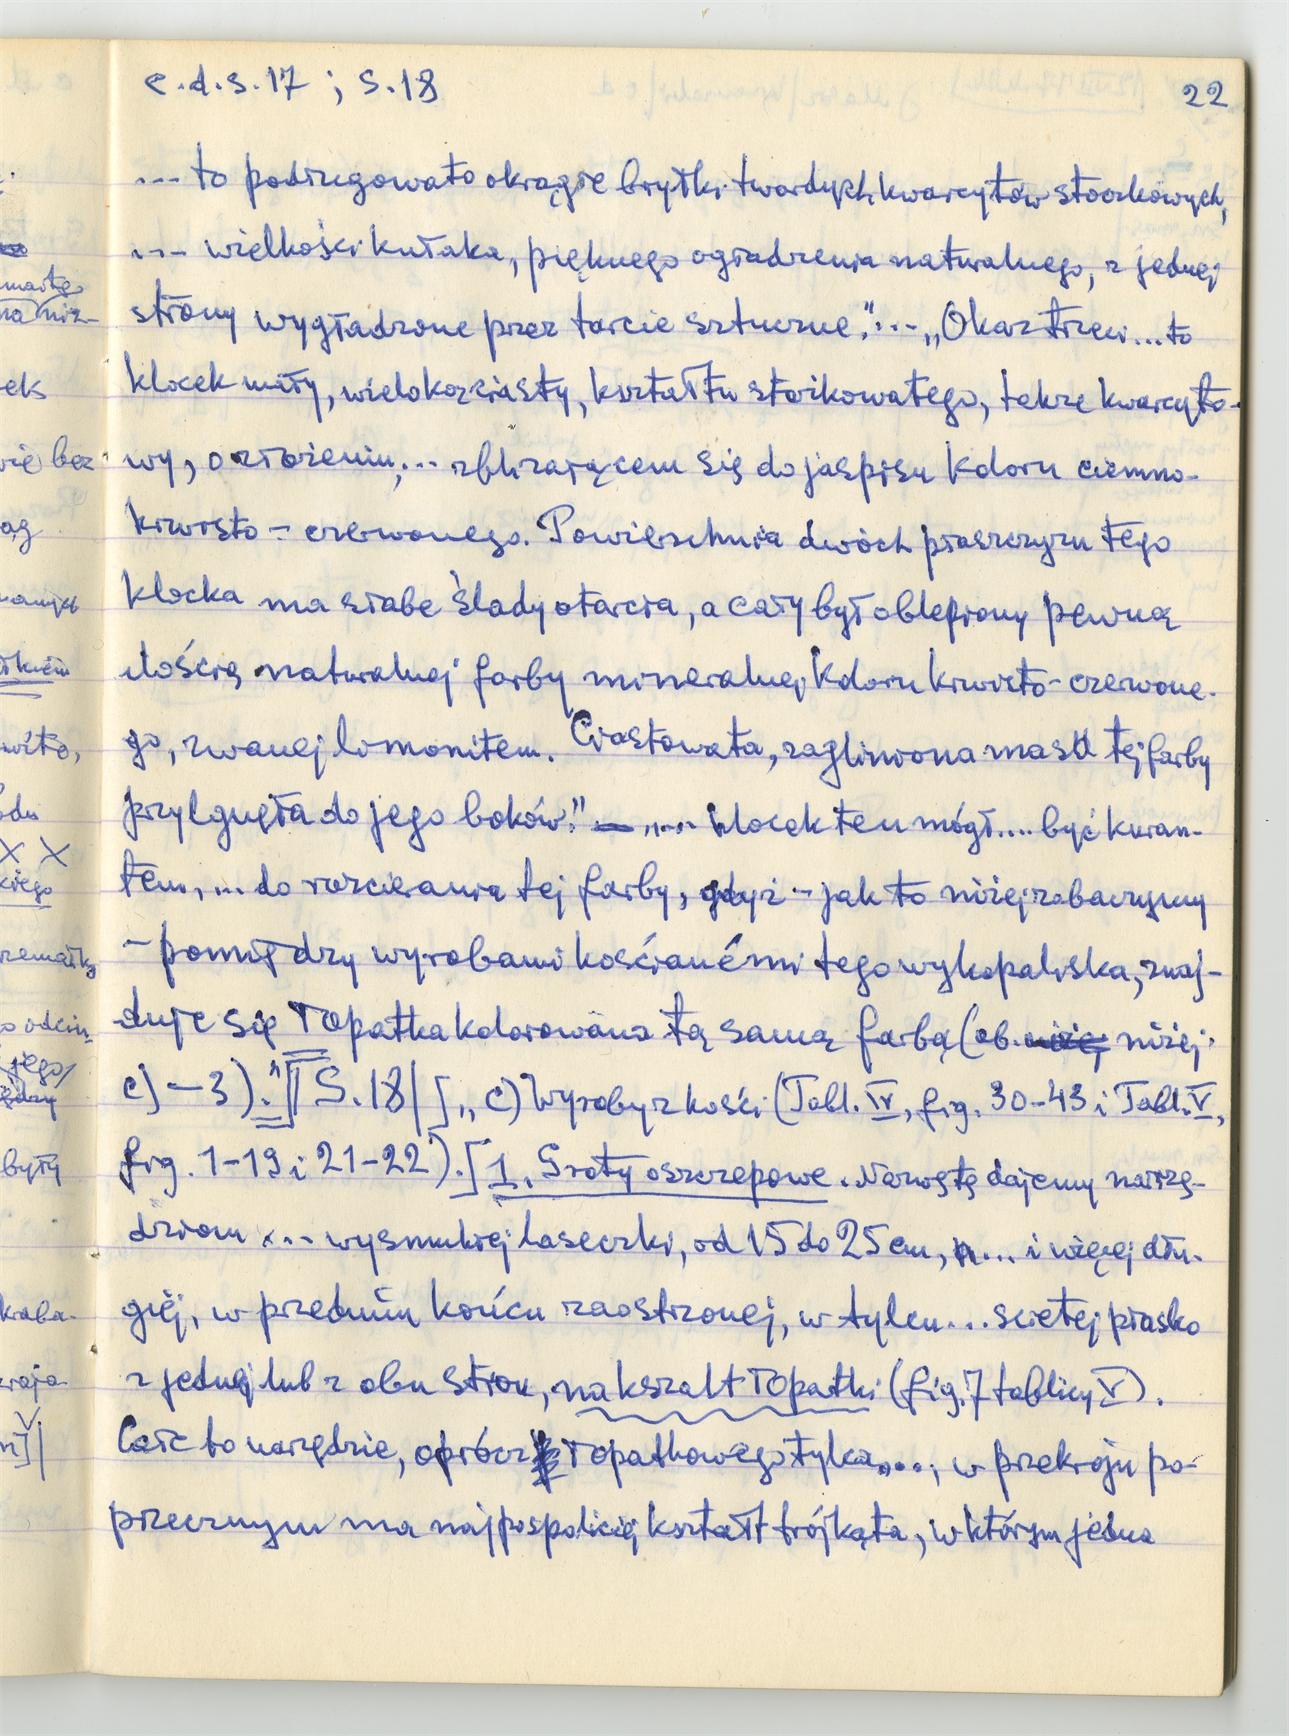 c.d.s.17 ; S.18
22
... to podługowato okrągłe bryłki twardych kwarcytów stoczkowych,
... wielkości kułaka, pięknego ogładzenia naturalnego, z jednej
strony wygładzone przez tarcie sztuczne." ... „Okaz trzeci... to
klocek mały, wielokanciasty, kształtu stożkowatego, także kwarcyto-
wy, o złożeniu,... zbliżającem się do jaspisu koloru ciemno-
krwisto-czerwonego. Powierzchnia dwóch płaszczyzn tego
klocka ma słabe ślady otarcia, a cały był oblepiony pewną
ilością naturalnej farby mineralnej koloru krwisto-czerwone-
go, zwanej limonitem. Ciastowata, zagliniona masa tej farby
przylgnęła do jego boków." — „... klocek ten mógł.... być kuran-
tem, ... do rozcierania tej farby, gdyż – jak to niżej zobaczymy
– pomiędzy wyrobami kościanémi tego wykopaliska, znaj-
duje się łopatka kolorowana tą samą farbą (ob. niżej
c) – 3)."]| S.18| [„ c) Wyroby z kości (Tabl. IV, fig. 30-43 i Tabl. V,
fig. 1-19 i 21-22). [1. Groty oszczepowe. Nazwę tę dajemy narzę-
dziom ... wysmukłej laseczki, od 15 do 25 cm, ... i więcej dłu-
giéj, w przednim końcu zaostrzonej, w tylcu... sciętej płasko
z jednej lub z obu stron, nakształt łopatki (fig. 7 tablicy V).
Całe to narzędzie, oprócz łopatkowego tylca,..., w przekroju po-
przecznym ma najpospoliciej kształt trójkąta, w którym jedna